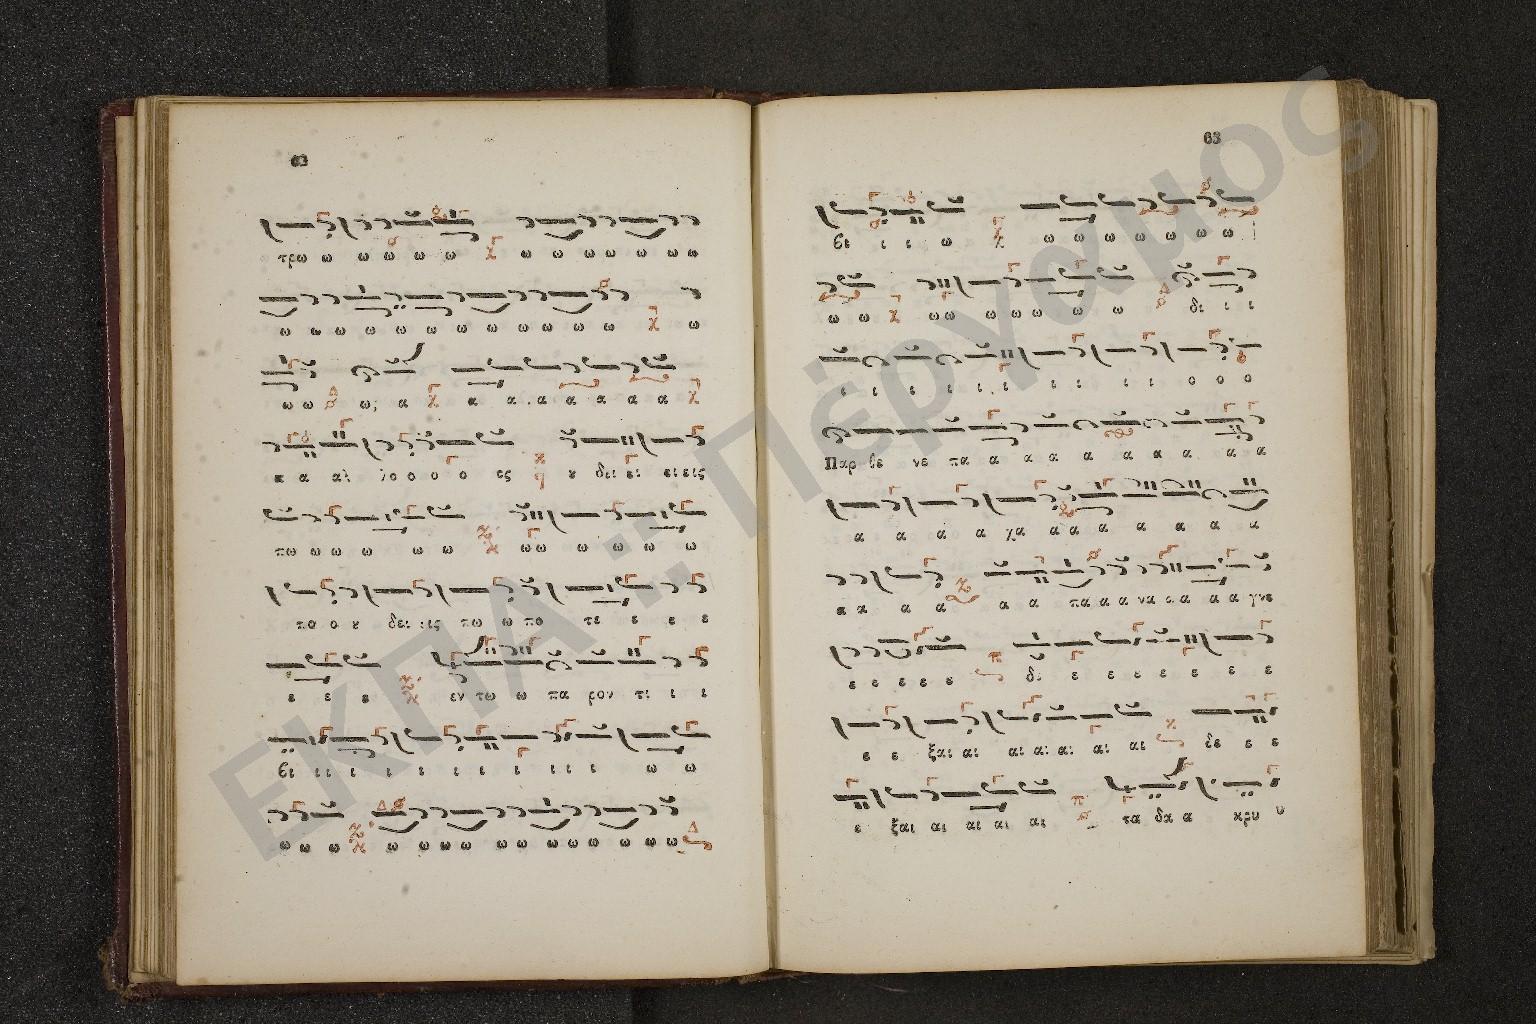 62
τρω ω ω ω ω ω ω ω ω ω ω ω ω
ω ω ω ω ω ω ω ω ω ω ω ω ω
ω ω ω; α α α α α α α α
α α αλ λο ο ο ο ο ος ου δει ει ει εις
πω ω ω ω ω ω ω ω ω ω ω ω
πα ο υ δει εις πω ω πο τε ε ε ε
ε ε ε εν τω ω πα ρον τι ι ι
βι ι ι ι ι ι ι ι ι ι ι ω ω
ω ω ω ω ω ω ω ω ω ω ω ω ω ω
63
βι ι ι ω ω ω ω ω ω ω ω
ω ω ω ω ω ω ω ω ω δι ι ι
ι ι ι ι ι ι ι ι ι ι ο ο ο
Παρ θε νε πα α α α α α α α α α
α α α α χα α α α α α α α
α α α α α α πα α α να α α α α γνε
ε ε ε ε ε δι ε ε ε ε ε ε
ε ε ξαι αι αι αι αι αι αι δε ε ε
ε ξαι αι αι αι αι τα δα α κρυ υ
ΕΚΠΑ :: Πέργαμος